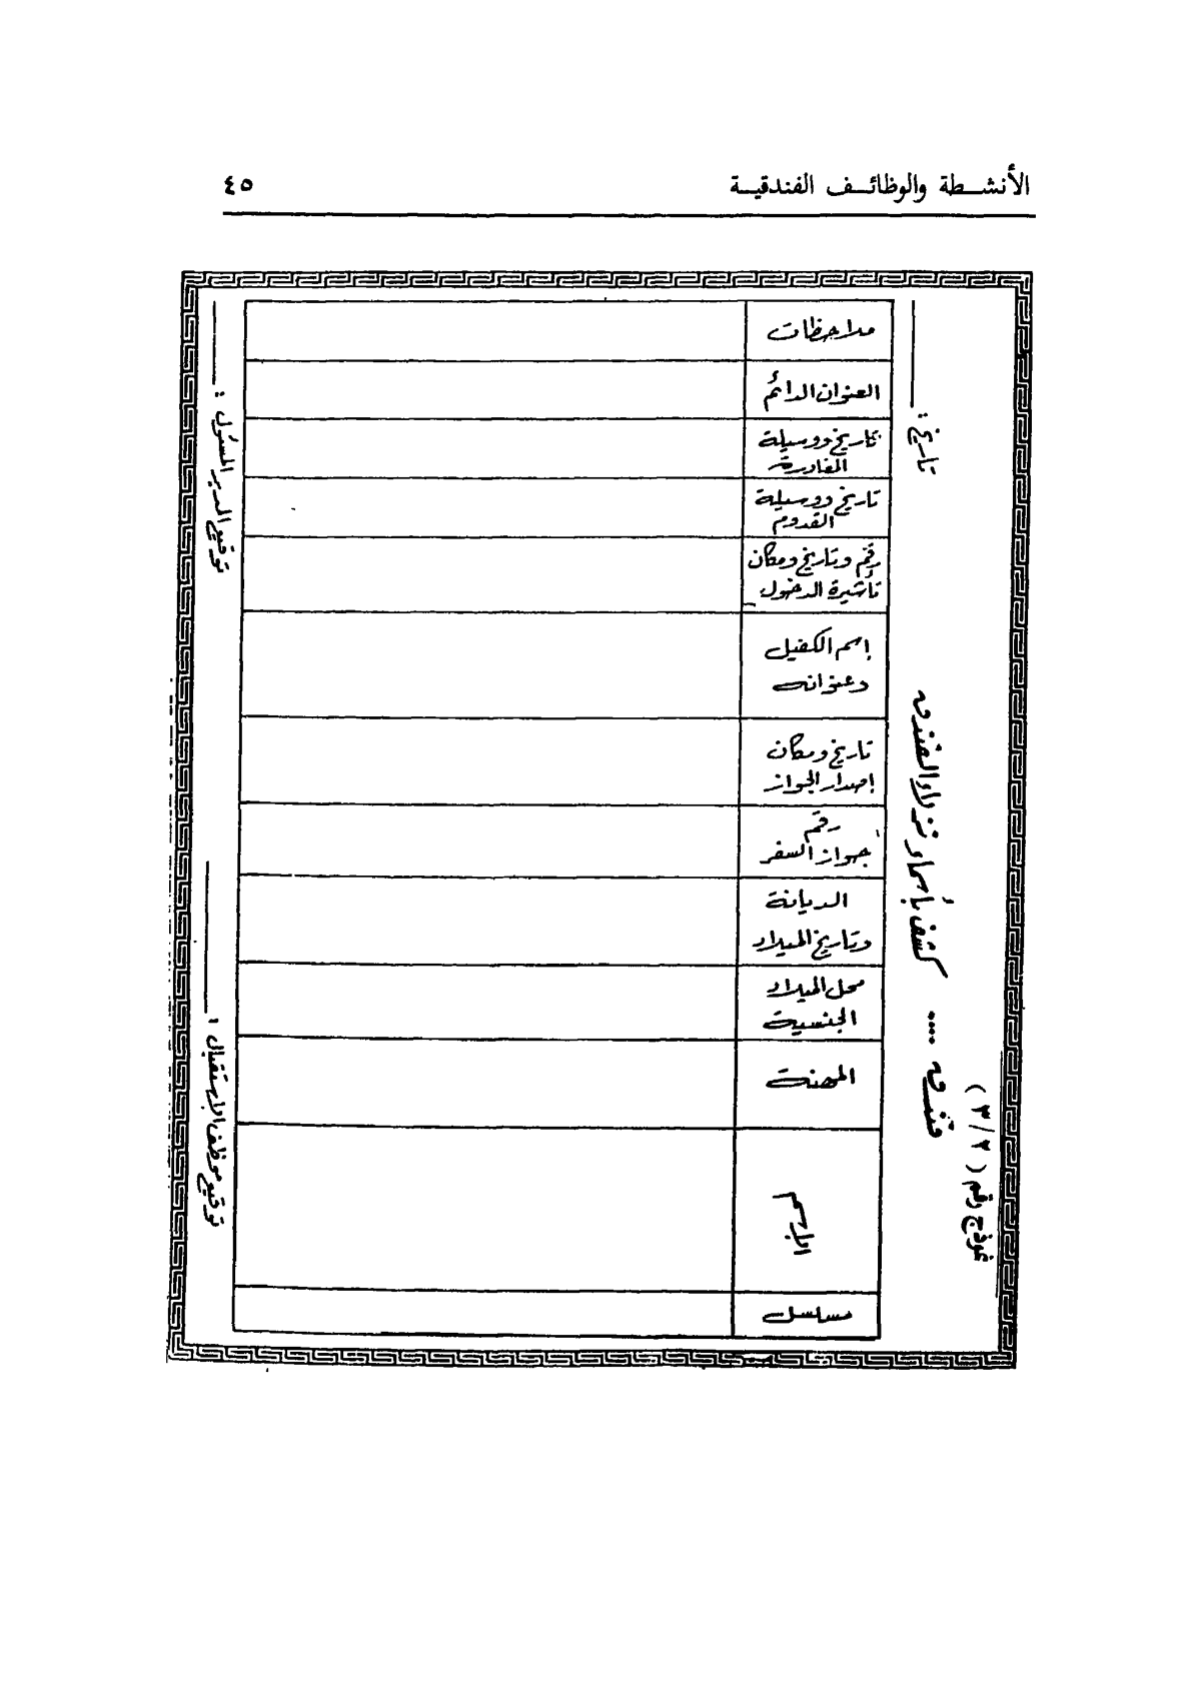 الأنشطة والوظائف الفندقية
٤٥
نموذج رقم ( ٣/٢ )
فندق ....
كشف بأسماء نزلاء الفندق
تاريخ :
ملاحظات
العنوان الدائم
تاريخ ووسيلة
المغادرة
تاريخ ووسيلة
القدوم
رقم وتاريخ ومكان
تأشيرة الدخول
إسم الكفيل
وعنوانه
تاريخ ومكان
إصدار الجواز
رقم
جواز السفر
الديانة
وتاريخ الميلاد
محل الميلاد
الجنسية
المهنة
الإسم
مسلسل
توقيع موظف الإستقبال :
توقيع المدير المسئول :